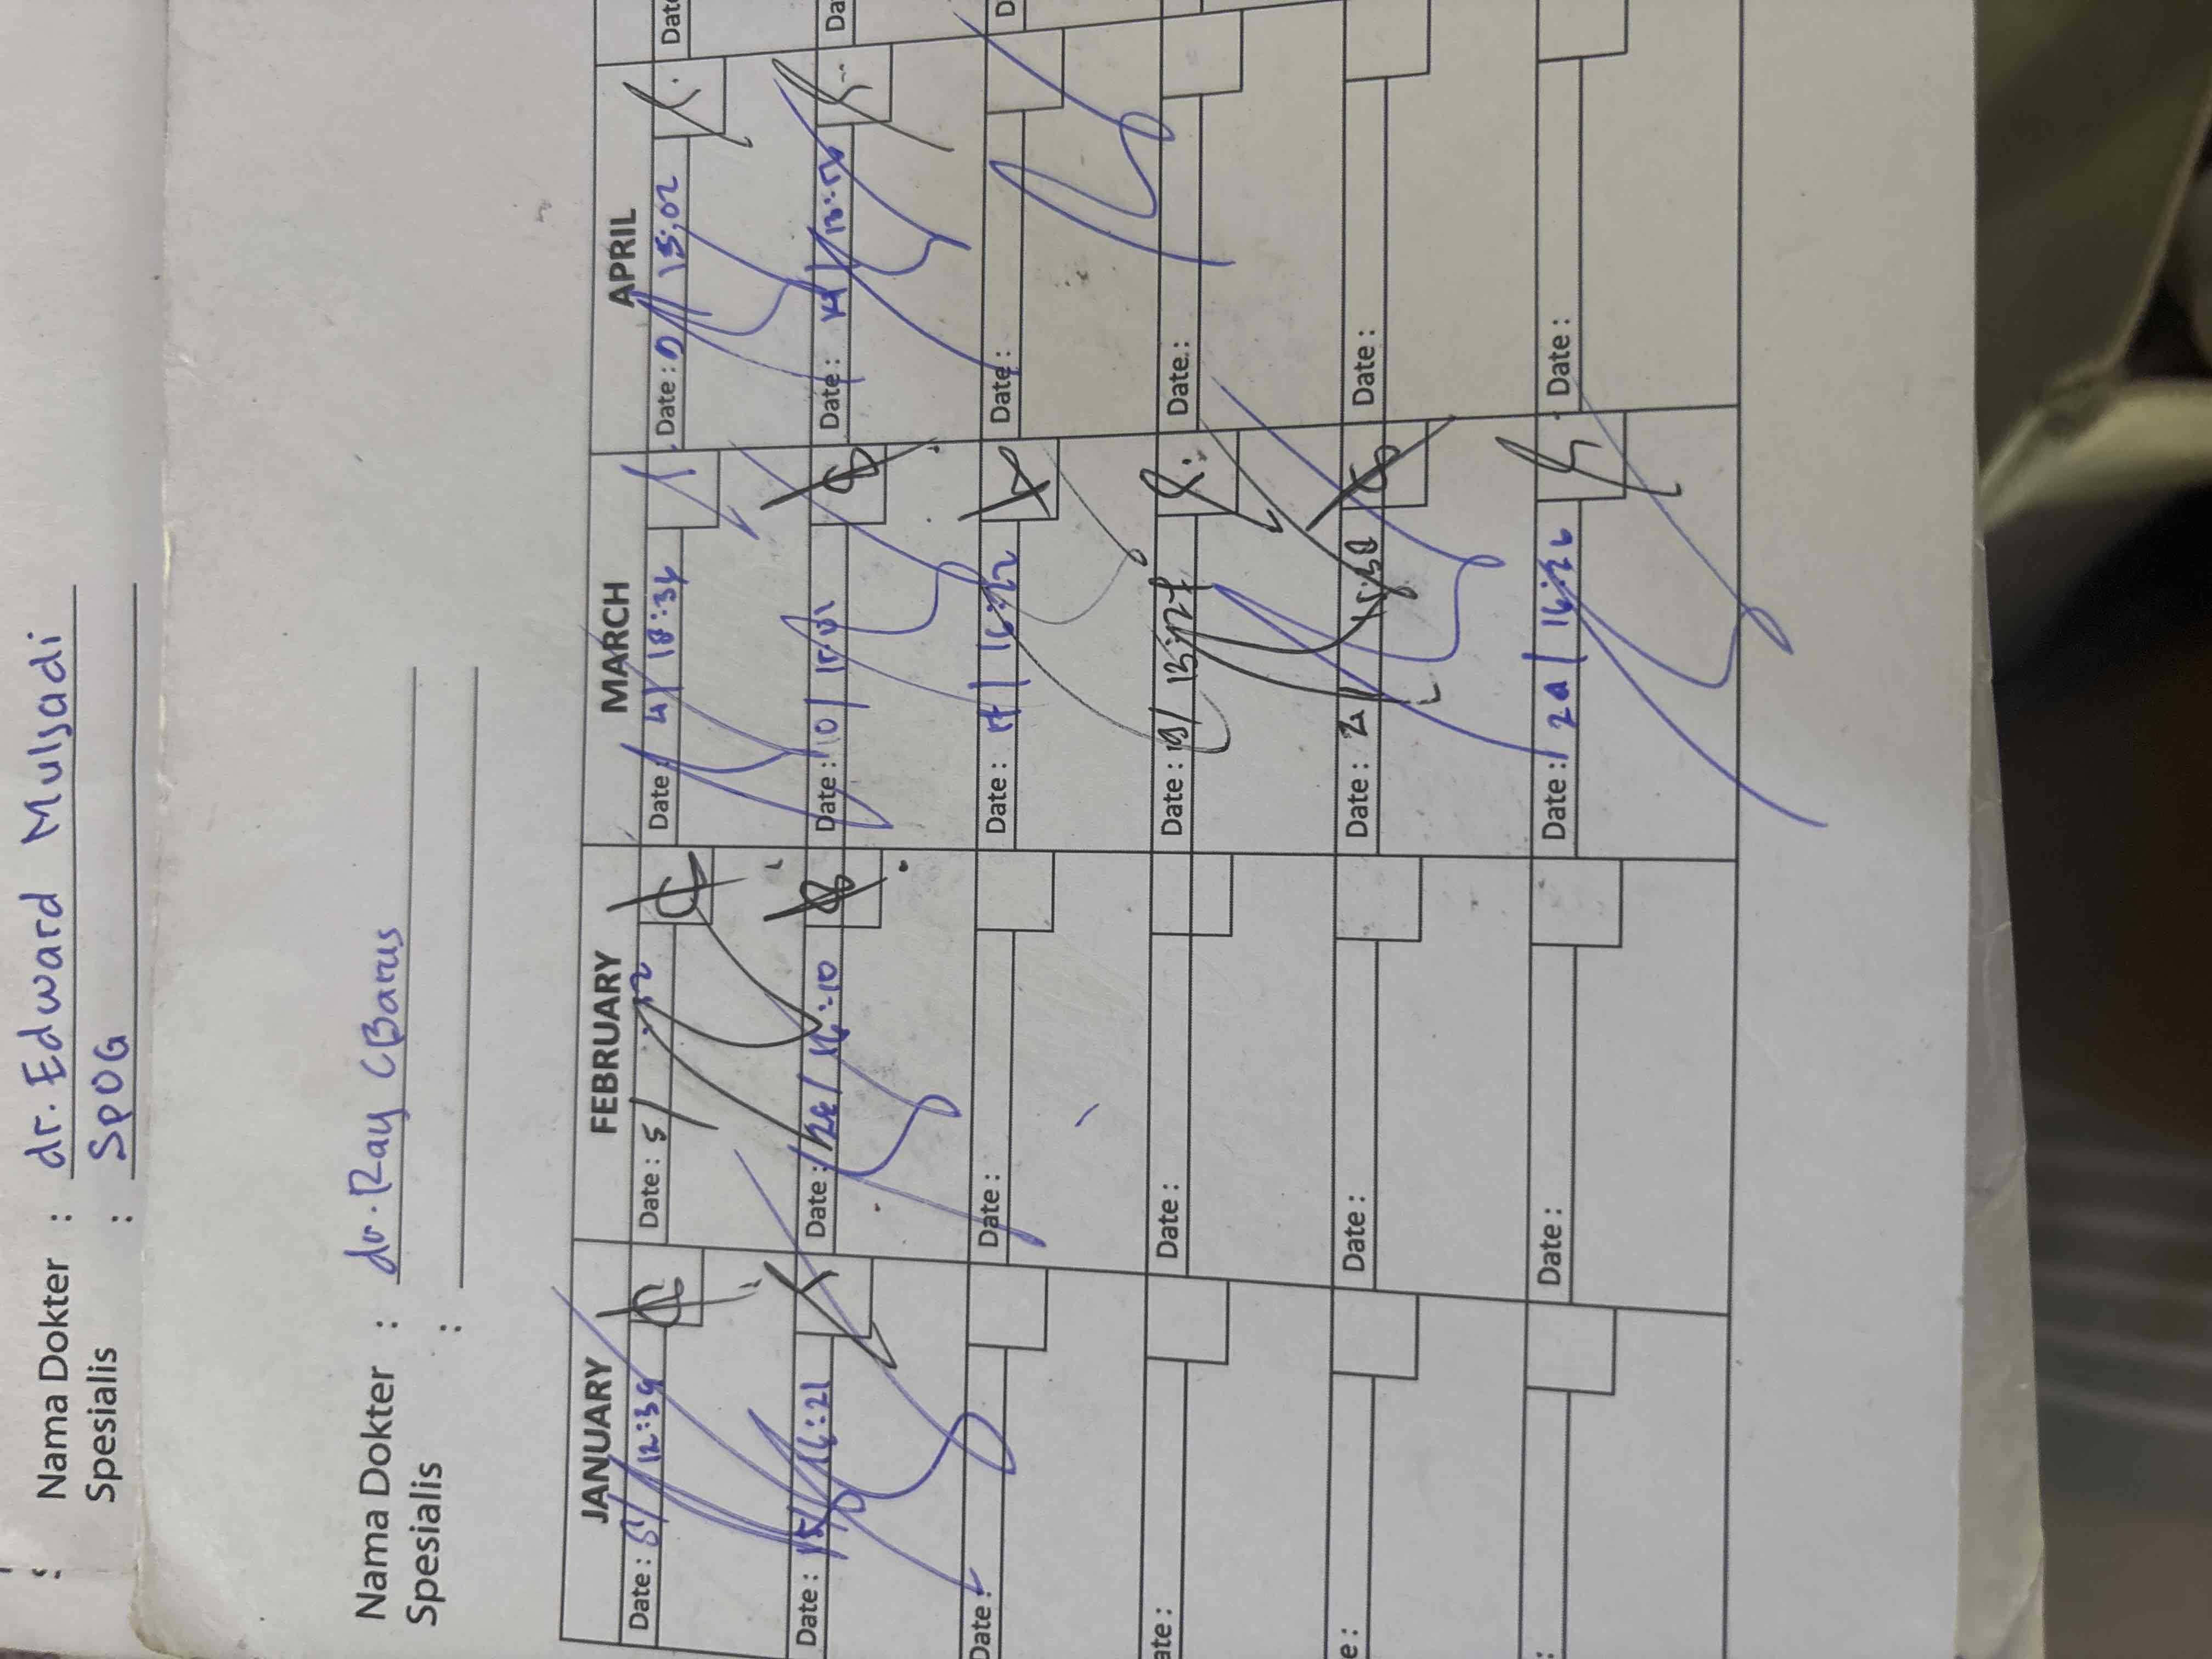 Nama Dokter : dr. Edward Mulsadi
Spesialis : SPOG
Nama Dokter : dr. Ray C Barus
Spesialis :
JANUARY FEBRUARY MARCH APRIL
Date : 12:39 Date : 5/ Date : 4/ 18:34 Date : 15:02 Date
Date : 15/ 16:21 Date : 16:10 Date : 10/ Date : 14/
Date : Date : Date : 17/ 16:22 Date :
ate : Date : Date : 19/ 13:27 Date :
e : Date : Date : Date :
: Date : Date : 16:26 Date :